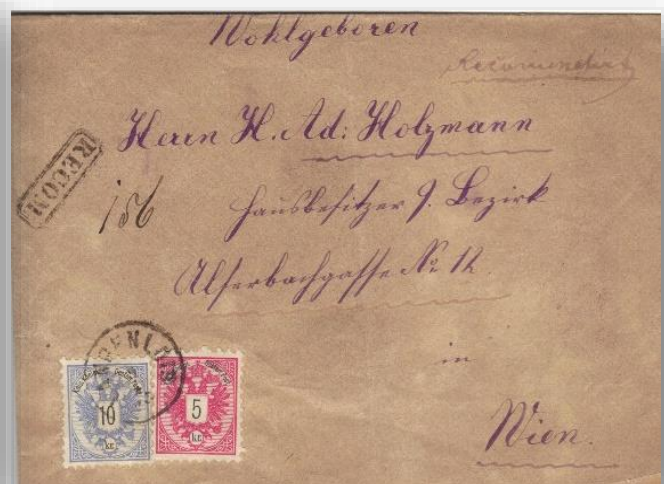 Wohlgeboren
Recommandirt
Herrn H. Ad: Holzmann
RECOM
156
Hausbesitzer 9. Bezirk
Alserbachgasse No 12
in
Wien.
10
kr.
5
kr.